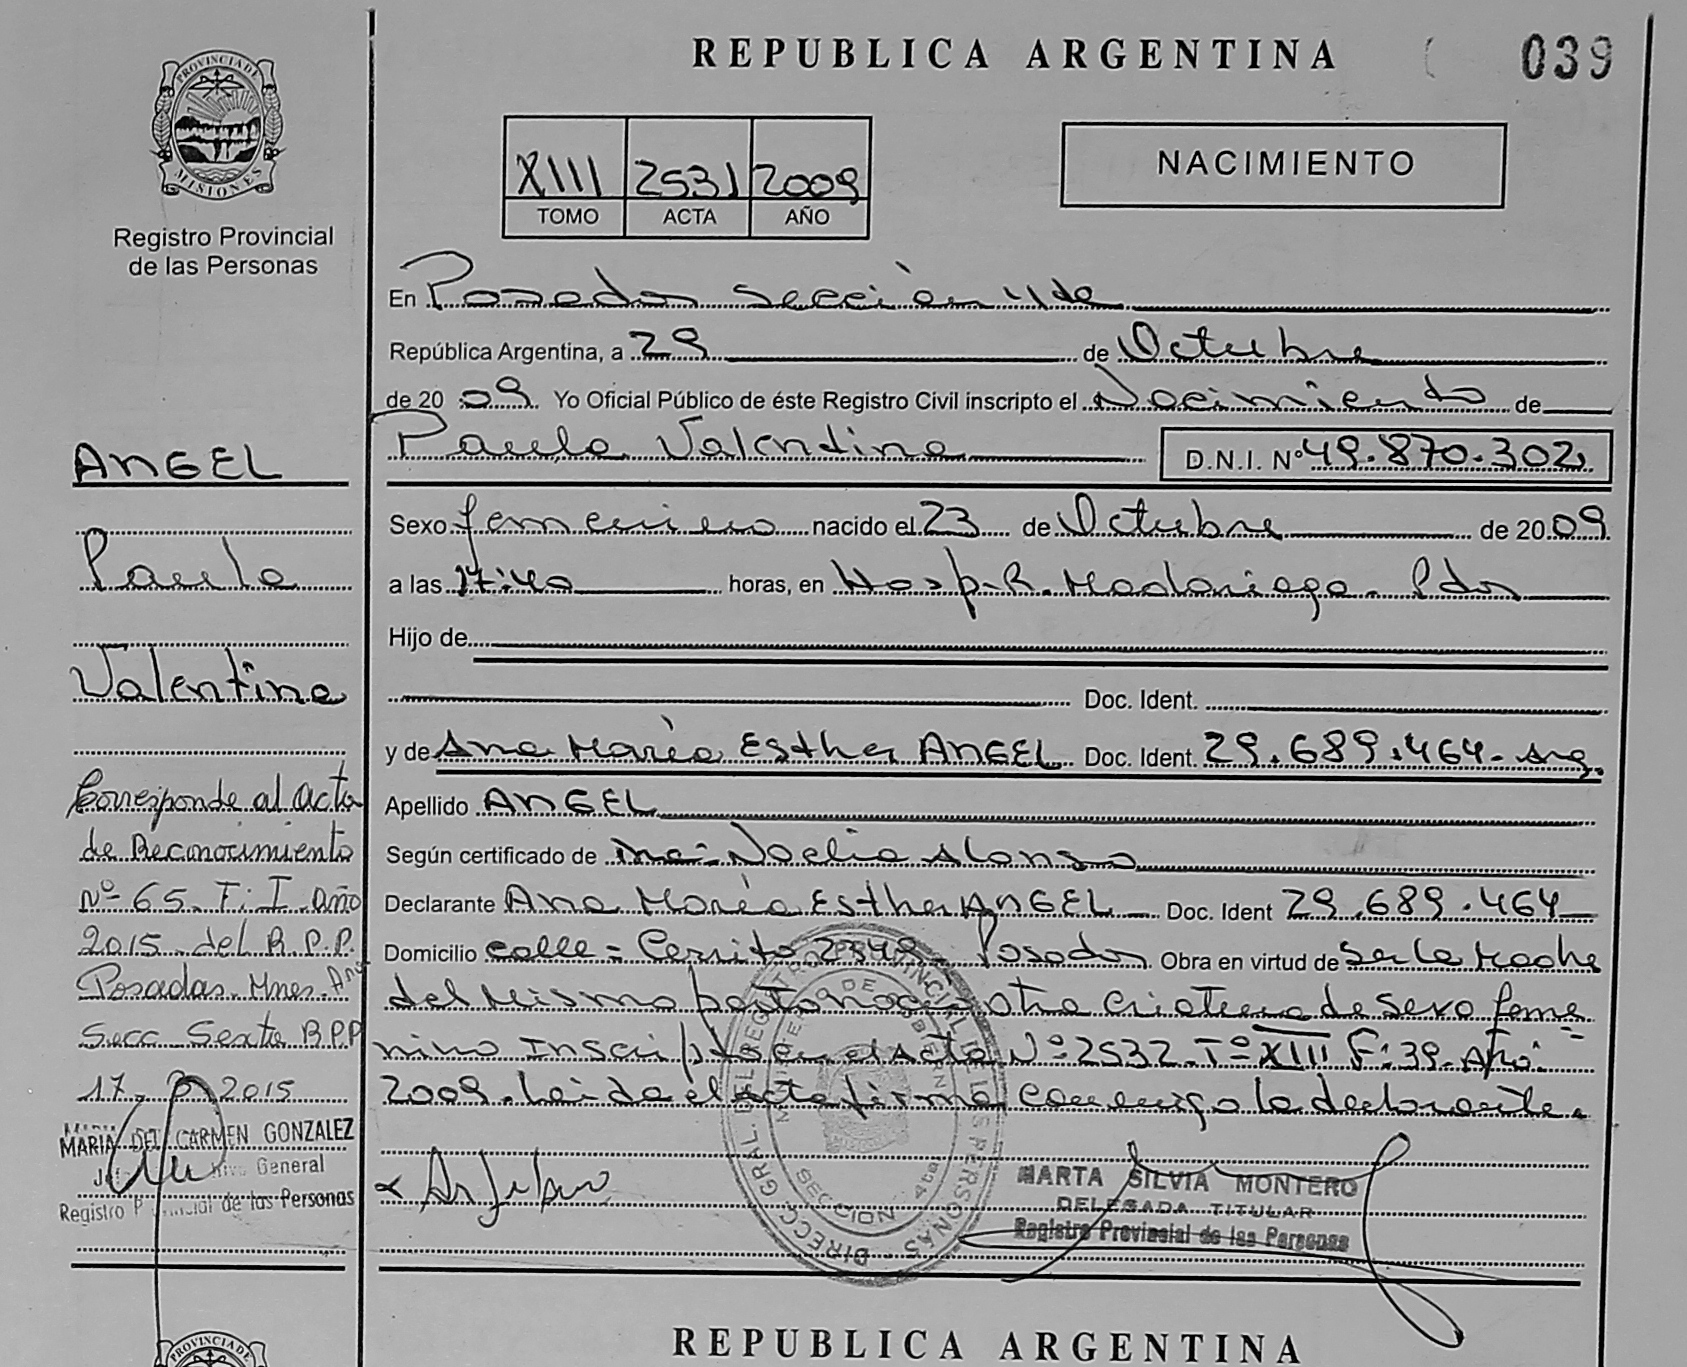 REPUBLICA ARGENTINA
039
PROVINCIA DE
MISIONES
Registro Provincial
de las Personas
XIII 2531 2009
TOMO ACTA AÑO
NACIMIENTO
En Posadas Sección 4de
República Argentina, a 29 de Octubre
de 2009. Yo Oficial Público de éste Registro Civil inscripto el Nacimiento de
Paula Valentina
D.N.I. Nº 49.870.302
Sexo femenino nacido el 23 de Octubre de 2009
a las 17:40 horas, en Hosp. R. Madariaga - Pdas
Hijo de
Doc. Ident.
y de Ana María Esther ANGEL Doc. Ident. 29.689.464 - Arg.
Apellido ANGEL
Según certificado de Noelia Alonso
Declarante Ana María Esther ANGEL Doc. Ident 29.689.464
Domicilio calle = Cerrito 2349 - Posadas Obra en virtud de Ser la Madre
del Mismo parto nace otra criatura de Sexo feme
nino Inscripta en el Acta Nº 2532 - Tº XIII F: 39 - Año:
2009. Leída el Acta firma conmigo la declarante.
MARTA SILVIA MONTERO
DELEGADA TITULAR
Registro Provincial de las Personas
DIRECC. GRAL. DEL REGISTRO PROVINCIAL DE LAS PERSONAS
MINISTERIO DE GOBIERNO
SECCION
ANGEL
Paula
Valentina
Corresponde al acta
de Reconocimiento
Nº 65 T: I Año
2015 del R.P.P.
Posadas. Mnes.
Secc Sexta R.P.P
17 2015
MARIA DEL CARMEN GONZALEZ
General
Registro de las Personas
PROVINCIA DE
REPUBLICA ARGENTINA